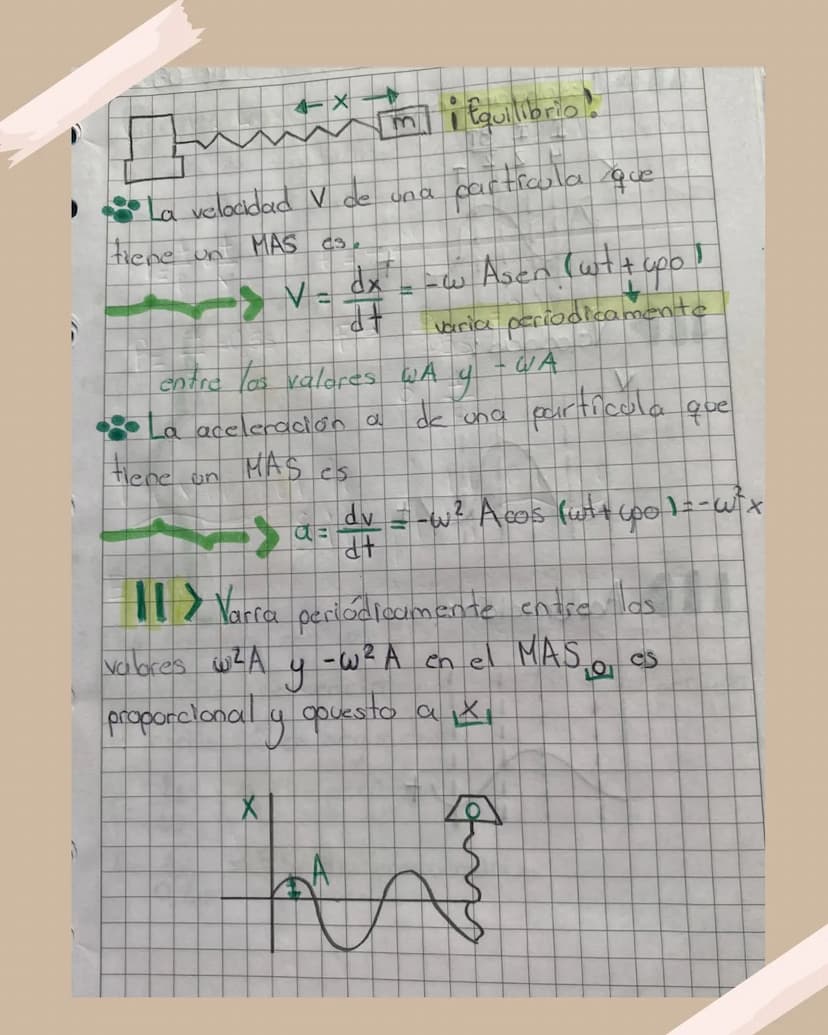 ← x → m ¡Equilibrio!
La velocidad V de una partícula que
tiene un MAS es.
V = dx/dt = -ω Asen (ωt + φo)
varia periodicamente
entre los valores ωA y -ωA
La aceleración a de una partícula que
tiene un MAS es
a = dv/dt = -ω² Acos (ωt + φo) = -ω²x
Varía periódicamente entre los
valores ω²A y -ω²A en el MAS, a es
proporcional y opuesto a x
X
A